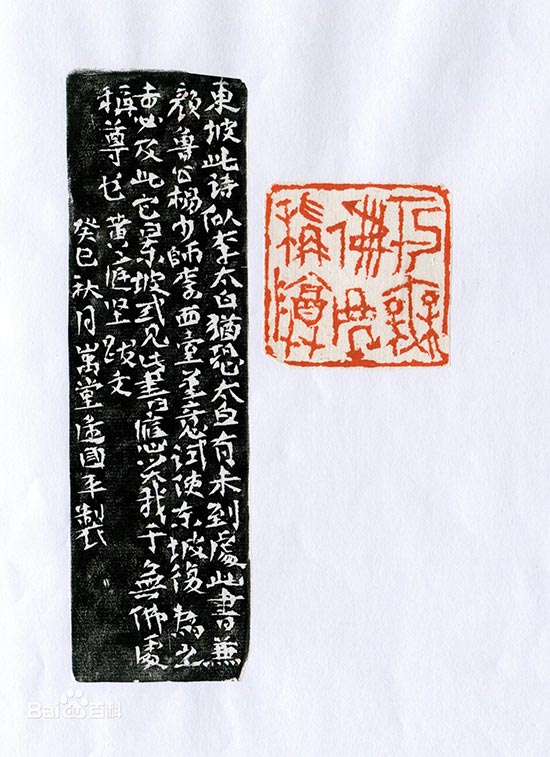 東坡此诗似李太白猶恐太白有未到處此書兼
颜魯公楊少師李西臺筆意试使东坡復為之
未必及此它日东坡或見此書應笑我于無佛處
稱尊也 黄庭坚跋文
癸巳秋月萬堂國平製
于無
佛処
稱尊
Bai百科